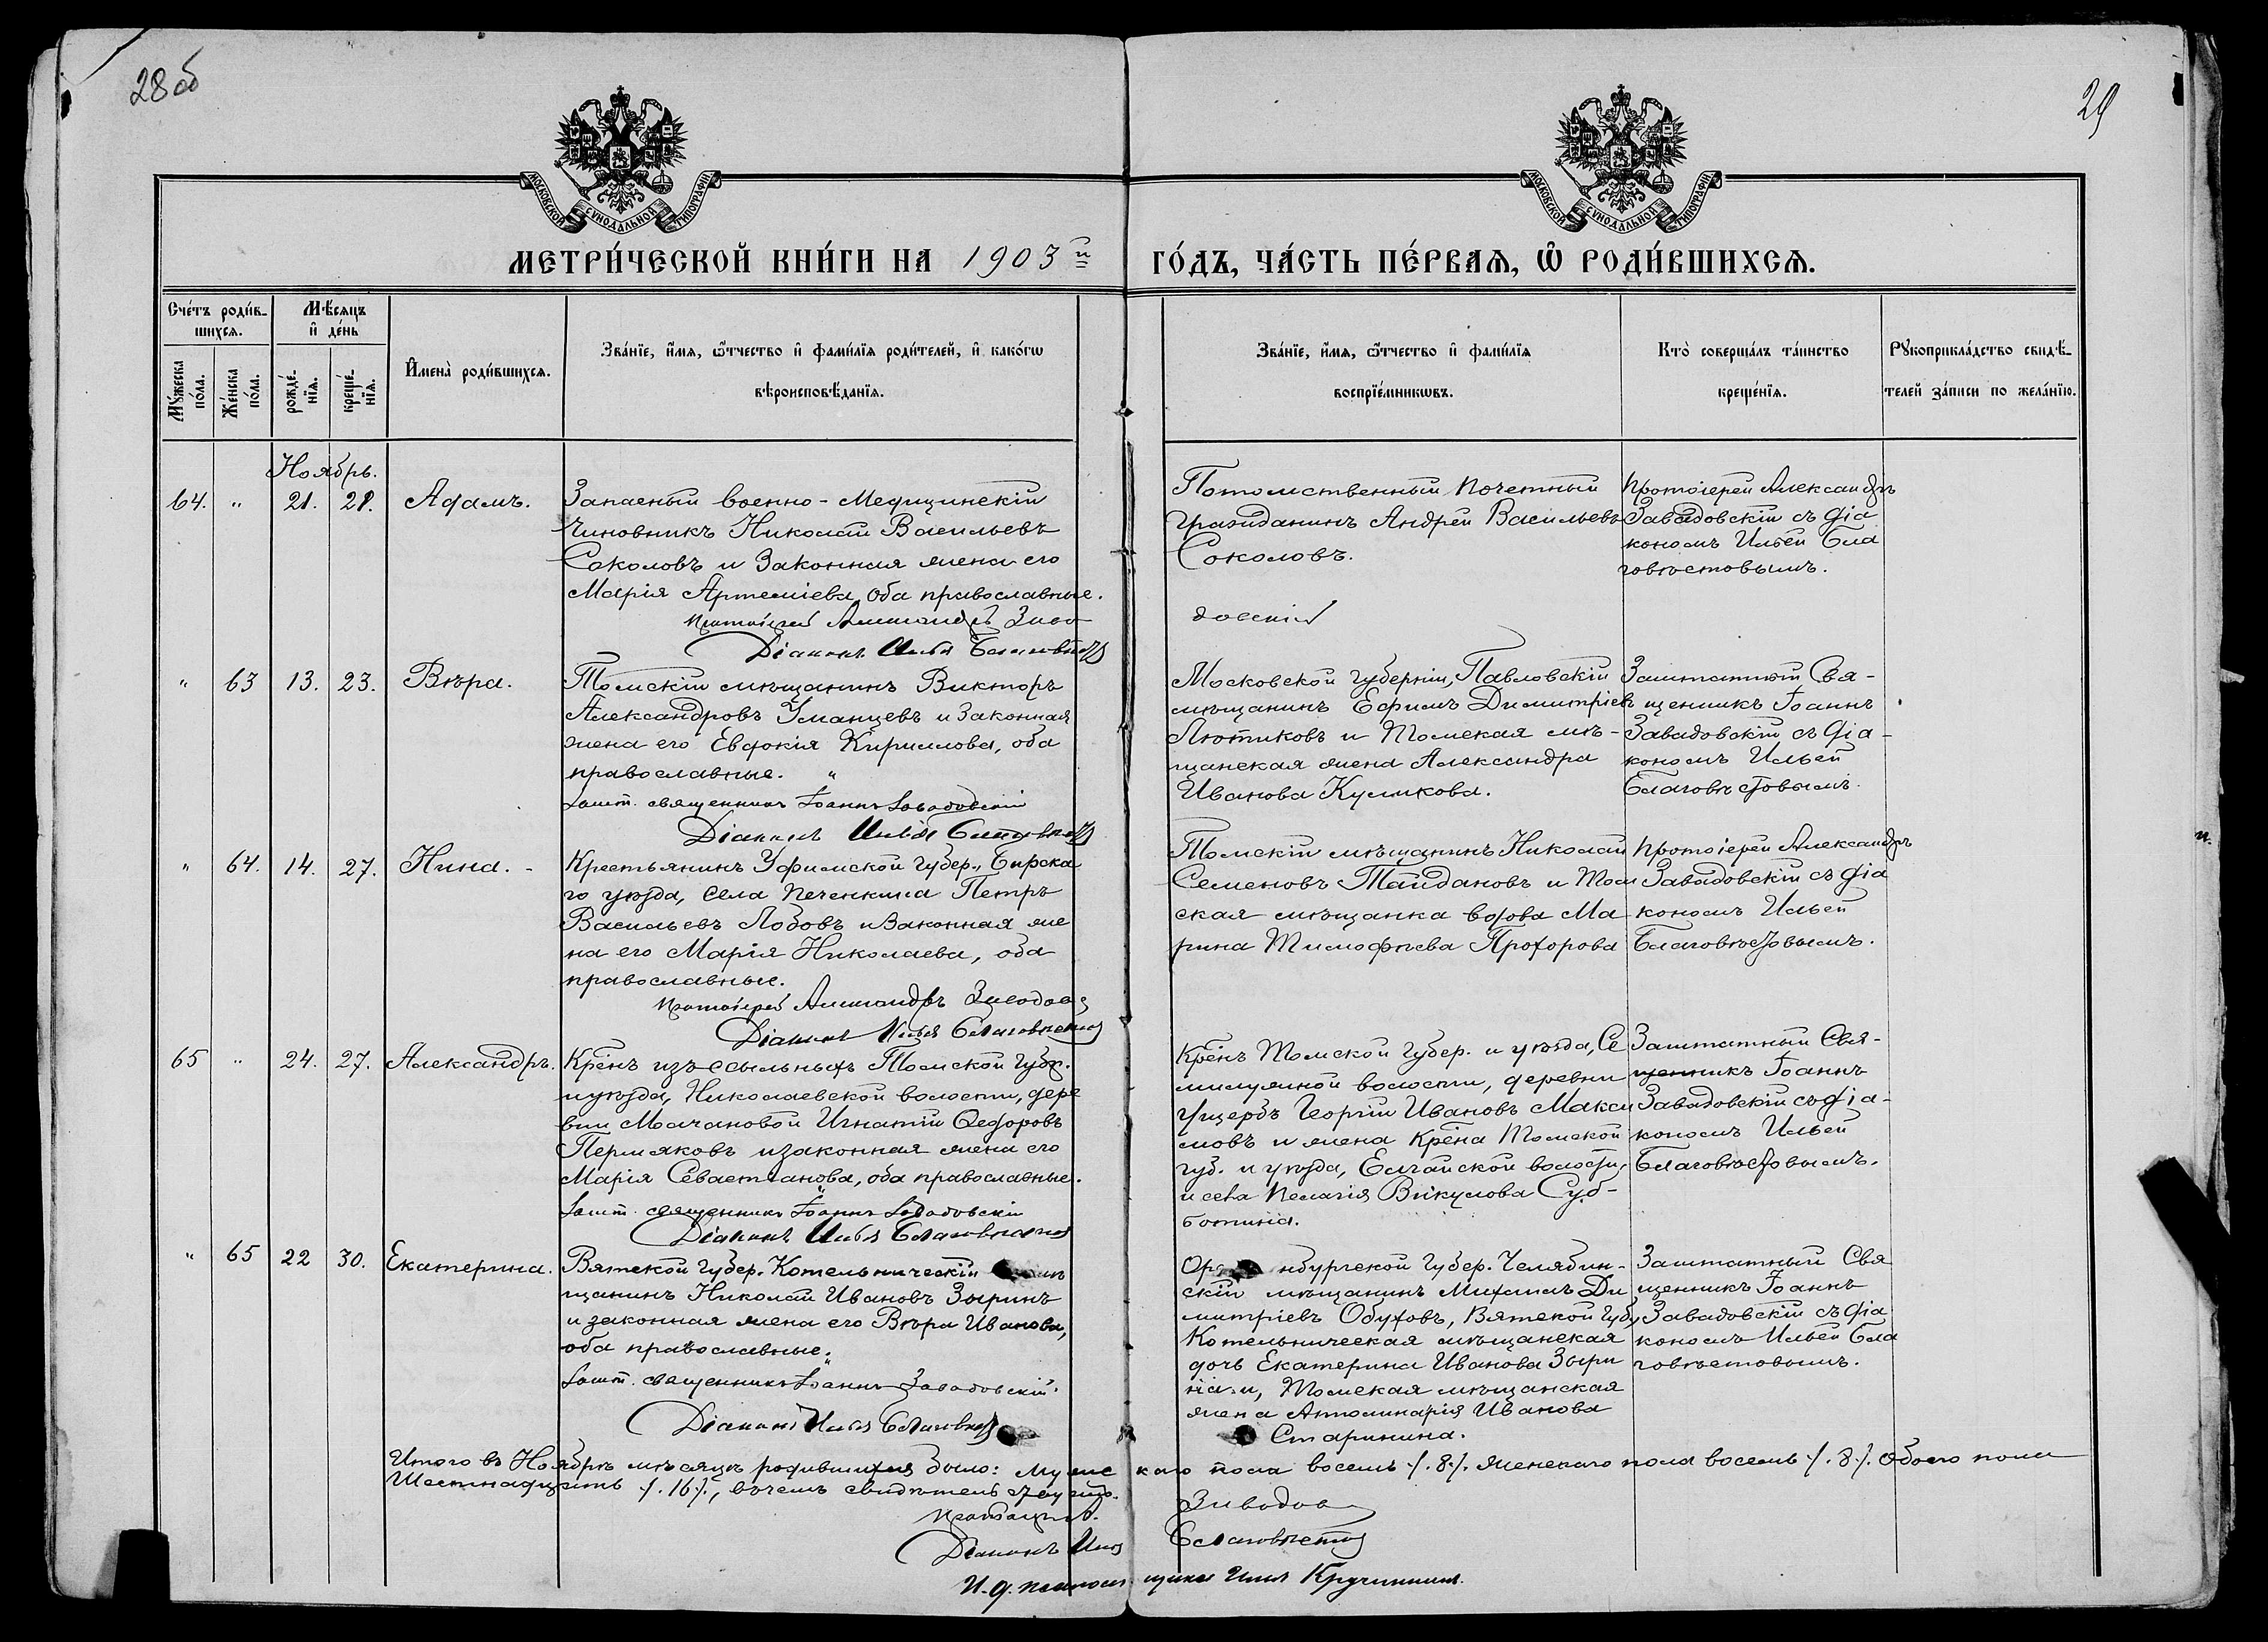 28 об
29
МОСКОВСКОЙ СѴНОДАЛЬНОЙ ТИПОГРАФІИ
МОСКОВСКОЙ СѴНОДАЛЬНОЙ ТИПОГРАФІИ
МЕТРИ́ЧЕСКОЙ КНИ́ГИ НА 1903й ГО́ДЪ, ЧА́СТЬ ПЕ́РВАѦ, Ѡ РОДИ́ВШИХСѦ.
Сче́тъ роди́в-
шихсѧ.
Мꙋ́жеска по́ла.
Же́нска по́ла.
Мѣ́сѧцъ
и҆ де́нь
рожде́-нїѧ.
креще́-нїѧ.
И҆мена̀ роди́вшихсѧ.
Зва́нїе, и҆́мѧ, ѻ҆́тчество и҆ фами́лїѧ роди́телей, и҆ како́гѡ
вѣроисповѣ́данїѧ.
Зва́нїе, и҆́мѧ, ѻ҆́тчество и҆ фами́лїѧ
воспрїе́мникѡвъ.
Кто̀ соверша́лъ та́инство
креще́нїѧ.
Рꙋкоприкла́дство свидѣ́-
телей за́писи по жела́нїю.
Ноябрь.
64. " 21. 21. Адамъ.
Запасный военно-Медицинскій
Чиновникъ Николай Васильевъ
Соколовъ и Законная жена его
Марія Артеміева, оба православные.
Протоіерей Александръ Заво
довскій
Діаконъ Илья Благовѣстовъ
Потомственный Почетный
Гражданинъ Андрей Васильевъ
Соколовъ.
Протоіерей Александръ
Завадовскій съ діа
кономъ Ильей Бла
говѣстовымъ.
" 63 13. 23. Вѣра.
Томскій мѣщанинъ Викторъ
Александровъ Уманцевъ и Законная
жена его Евдокія Кириллова, оба
православные.
Зашт. священникъ Іоаннъ Завадовскій
Діаконъ Илья Благовѣстовъ
Московской губерніи, Павловскій
мѣщанинъ Ефимъ Димитріевъ
Лютиковъ и Томская мѣ-
щанская жена Александра
Иванова Куликова.
Заштатный Свя-
щенникъ Іоаннъ
Завадовскій съ діа-
кономъ Ильей
Благовѣстовымъ.
" 64. 14. 27. Нина.
Крестьянинъ Уфимской губер., Бирска
го уѣзда, села Печенкина Петръ
Васильевъ Лобовъ и Законная же
на его Марія Николаева, оба
православные.
Протоіерей Александръ Заводов
Діаконъ Илья Благовѣстовъ
Томскій мѣщанинъ Николай
Семеновъ Тайдановъ и Том
ская мѣщанка вдова Ма
рина Тимофѣева Прохорова
Протоіерей Александръ
Завадовскій съ діа
кономъ Ильей
Благовѣстовымъ.
65 " 24. 27. Александръ.
Крѣнъ изъ ссыльныхъ Томской губер.
и уѣзда, Николаевской волости, дере
вни Молчановой Игнатій Ѳедоровъ
Пермяковъ и законная жена его
Марія Севастіанова, оба православные.
Зашт. священникъ Іоаннъ Завадовскій
Діаконъ Илья Благовѣстовъ
Крѣнъ Томской губер. и уѣзда, Се
милужной волости, деревни
Ущербъ Георгій Ивановъ Макси
мовъ и жена Крѣна Томской
губ. и уѣзда, Елгайской волости
и села Пелагія Викулова Суб-
ботина.
Заштатный Свя-
щенникъ Іоаннъ
Завадовскій съ діа-
кономъ Ильей
Благовѣстовымъ.
" 65 22 30. Екатерина.
Вятской губер. Котельническій
щанинъ Николай Ивановъ Зыринъ
и законная жена его Вѣра Иванова,
оба православные.
Зашт. священникъ Іоаннъ Завадовскій.
Діаконъ Илья Благовѣстовъ
Оре нбургской губер. Челябин-
скій мѣщанинъ Михаилъ Ди
митріевъ Обуховъ, Вятской губ.,
Котельническая мѣщанская
дочь Екатерина Иванова Зыри
на и, Томская мѣщанская
жена Апполинарія Иванова
Старинина.
Заштатный Свя
щенникъ Іоаннъ
Завадовскій съ діа
кономъ Ильей Бла
говѣстовымъ.
Итого въ Ноябрѣ мѣсяцѣ родившихся было: Мужс каго пола восемь /.8./. Женскаго пола восемь /.8./. Обоего пола
Шестнадцать /.16/., въ чемъ свидѣтельствуютъ.
Протоіерей А. Заводов
Діаконъ Илья Благовѣстовъ
И. д. псаломщика Илья Кручинин